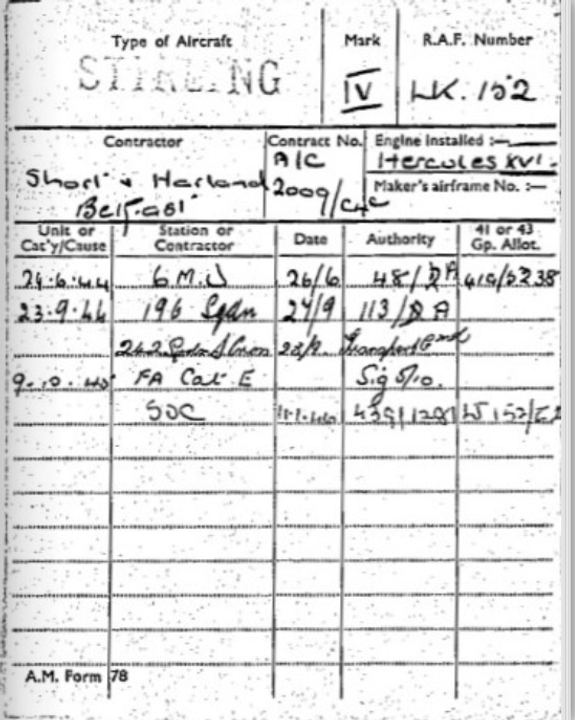 Type of Aircraft Mark R.A.F. Number
STIRLING IV LK.152
Contractor Contract No. Engine Installed :—
A/C Hercules XVI.
Short & Harland 2009/C4C Maker's airframe No. :—
Belfast
Unit or Cat'y/Cause Station or Contractor Date Authority 41 or 43 Gp. Allot.
24.6.44 6 M.U 26/6 48/ A
23.9.44 196 Sqdn 24/9 113/ A
242 Sqdn Transport
9.10.45 FA Cat E Sig
SOC 11.1.46
A.M. Form 78